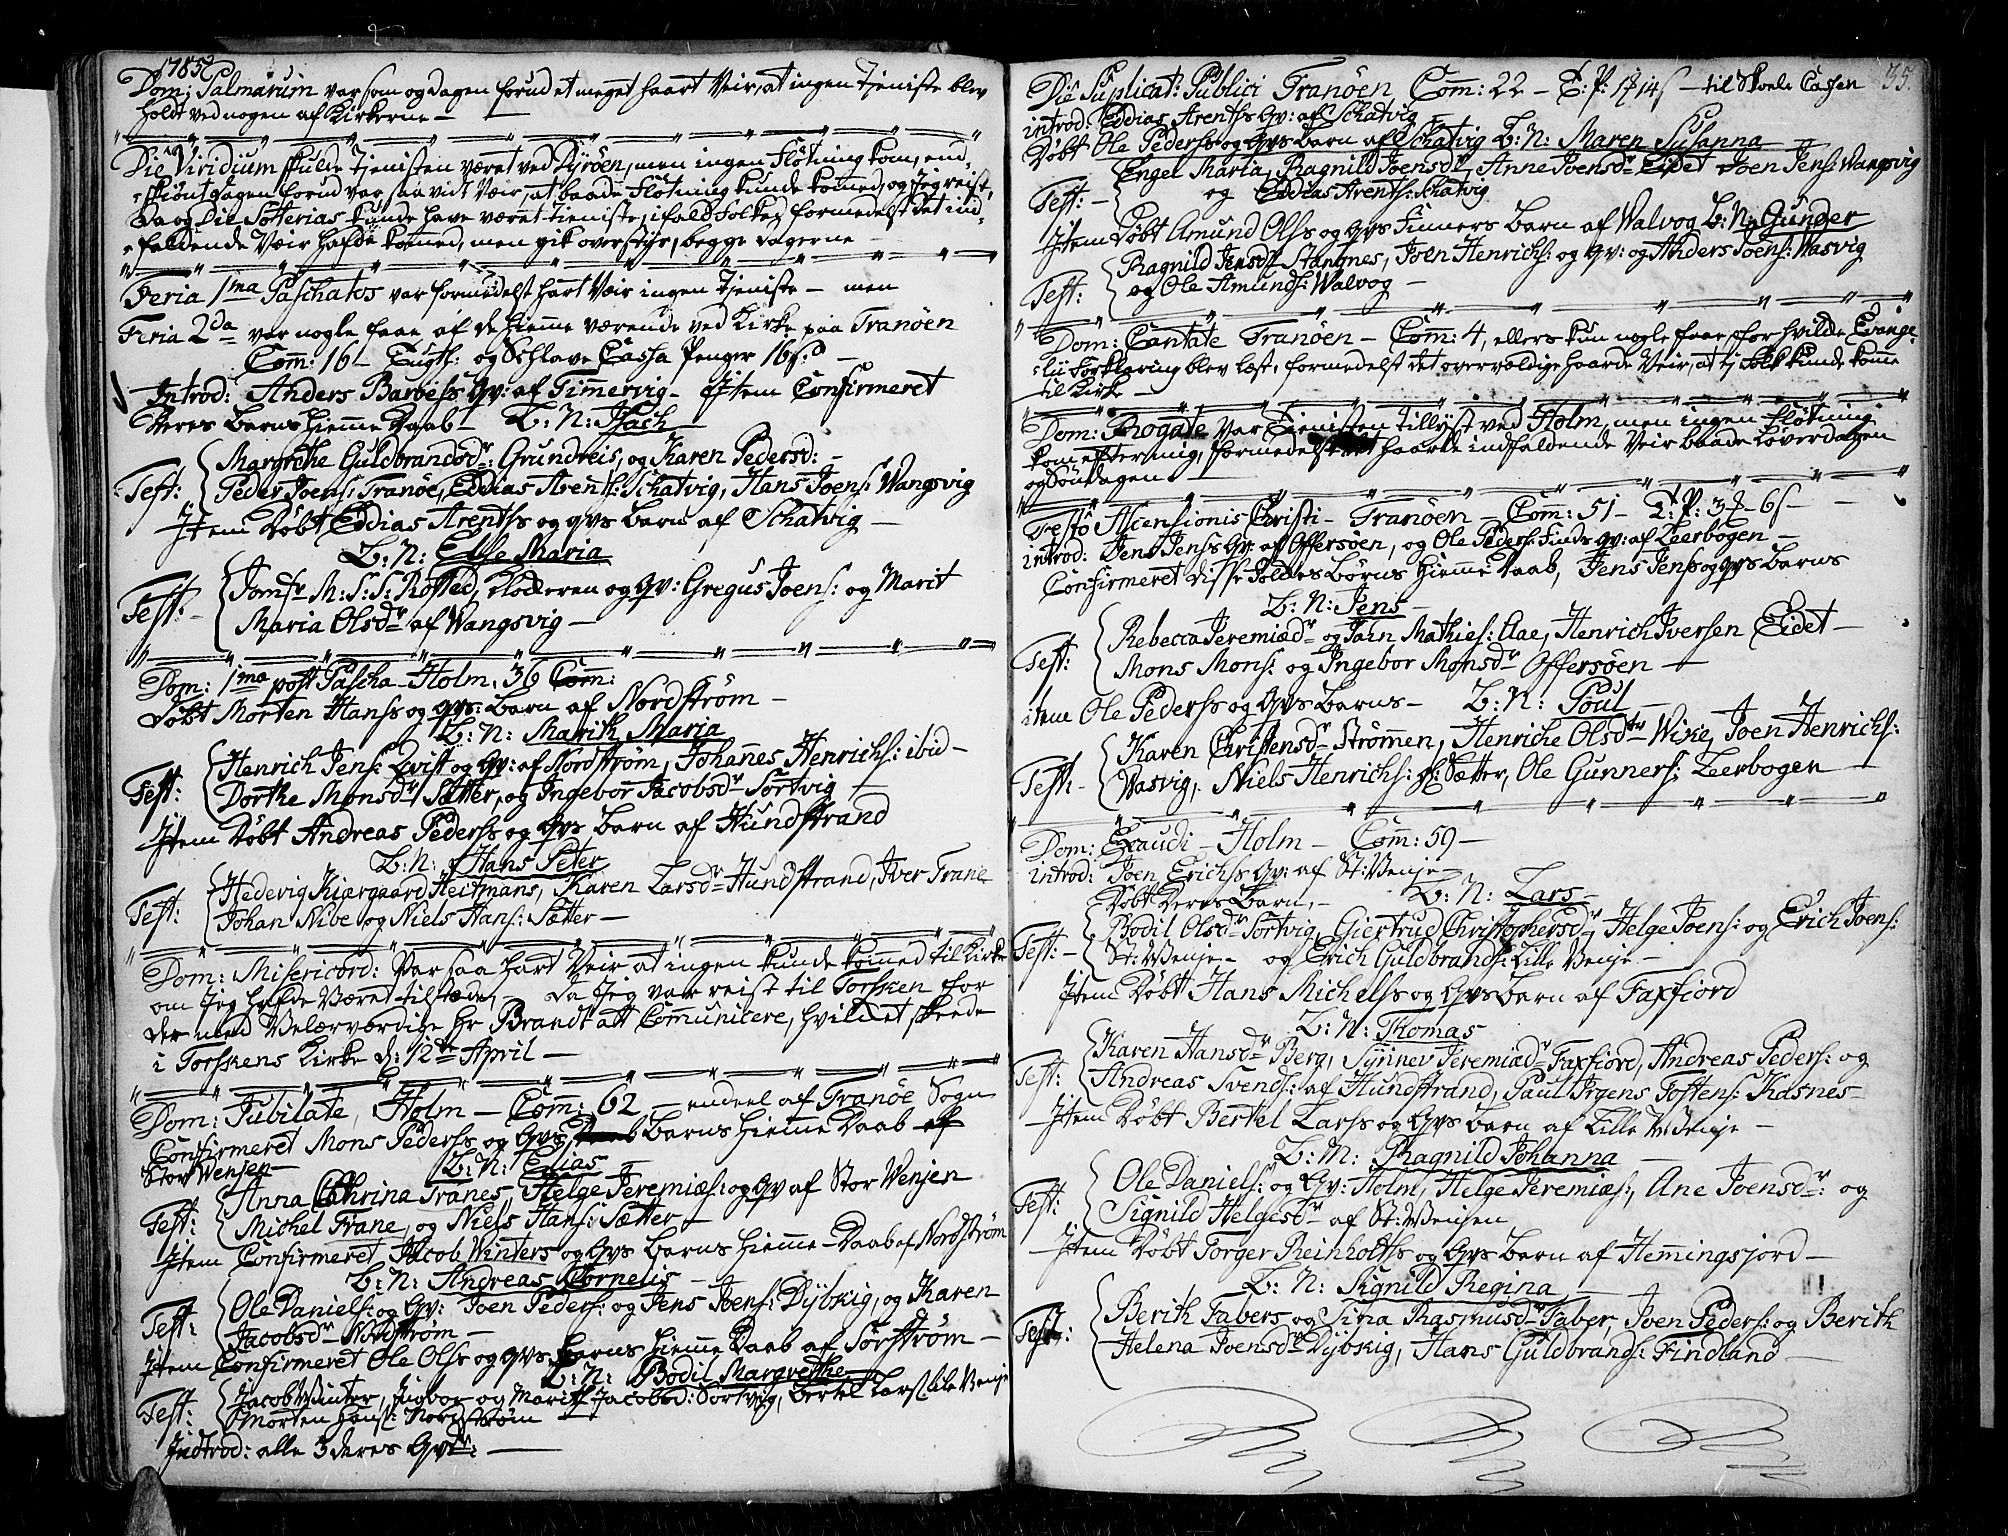 1785
Dom: Palmarum var som og dagen forud et meget haart Veir, at ingen Tjeniste blev
holdt ved nogen af Kirkerne —
Die Viridium skulde Tjenisten været ved Dyröen, men ingen Fløtning kom, end-
skiönt dagen forud var saa vidt Vær, at baade Fløtning kunde kommed, og Jeg reist,
da og Die Soterias kunde have været tieniste, ifald Folket formedelst det ind-
faldende Veir hafde kommed, men gik overstyr, begge dagerne —
Feria 1ma Paschatos var formedelst hart Vær ingen Tjeniste — men
Feria 2da var nogle faae af de hiemme værende ved Kirke paa Tranöen
Com̄: 16 — Tugth: og Schlave Cassa Penger 16 s —
Introd: Anders Barbess Qv: af Timmervig — Item Confirmeret
deres Barns hiemme Daab — B: N: Isach
Test: Margrethe Guldbrandsdr: Grundreis, og Karen Pedersd: —
Peder Joens: Tranöe, Eddias Arents: Schatvig, Hans Joens: Wangsvig
Item Døbt Eddias Arentss og qvs barn af Schatvig —
B: N: Else Maria
Test: — Jomfr M: S: S: Rofsted, Klokeren og Qv: Gregus Joens: og Marit
Maria Olsdr af Wangsvig —
Dom: 1ma post Pascha — Holm. 36 Com̄:
Døbt Morten Hanss og qvs: Barn af Nordstrøm —
B: N: Marith Maria
Test: Henrich Jens: Qvist og Qv: af Nordstrøm, Johannes Henrichs: ibid —
Dorthe Monsdr Sætter, og Ingebor Jacobsdr Sörtvig —
Item Døbt Andreas Pederss og Qvs barn af Hundstrand
B: N: Hans Peter
Test: Hedevig Kiærgaard Heitmans, Karen Larsdr Hundstrand, Iver Trane
Johan Nibe og Niels Hans: Sætter —
Dom: Misericord: Var saa hart Veir at ingen kunde kommed til Kirke
om Jeg hafde Været tilstæde, da Jeg var reist til Torsken for
der med Velærværdige hr Brandt att Communicere, hvilket skeede
i Torskens Kirke d: 12te April —
Dom: Jubilate, Holm — Com̄: 62 — endeel af Tranöe Sogn
Confirmeret Mons Pederss og Qvs Barns hiemme Daab af
Stor Wenjen — B: N: Elias —
Test: Anna Cathrina Tranes, Helge Jeremiæs: og Qv af Stor Wenjen
Michel Trane, og Niels Hans: Sætter —
Item Confirmeret Jacob Winters og Qvs Barns hiemme-Daab af Nordstrøm
B: N: Andreas Cornelis —
Test: Ole Daniels: og Qv: Joen Peders: og Jens Joens: Dÿbvig, og Karen
Jacobsdr Nordstrøm —
Item Confirmeret Ole Olss og qvs Barns hiemme Daab af Sörstrøm —
B: N: Bodil Margrethe
Test: Jacob Winter, Ingbor og Marit Jacobsd: Sortvig, Bertel Lars: lile Venje
Morten Hans: Nordstrøm
Indtrod: alle 3 deres Qvdr: —
35.
Die Suplicat: Publici Tranöen Com̄: 22 — T: P: 1 14 s — til Skole Cassen
introd: Eddias Arentss Qv: af Schatvig —
Döbt Ole Pederss og Qvs barn af Schatvig B: N: Maren Susanna
Test: — Engel Maria, Ragnild Joensdr, Anne Joensdr Eidet Joen Jens: Wangsvig
og Eddias Arents: Schatvig
Item Döbt Amund Olss og Qvs Finners Barn af Walvog B: N: Gunder
Test: Ragnild Jensdr Stangnes, Joen Henrichs: og Qv: og Anders Joens: Wasvig
og Ole Amunds: Walvog —
Dom: Cantate Tranöen — Com̄: 4, ellers kun nogle faae, for hvilke Evange-
lii Forklaring blev læst, formedelst det overvældige haarde Veir, at ej Folk kunde komme
til Kirke —
Dom: Rogate Var Tienisten tillyst ved Holm, men ingen Fløtning
kom efter mig, formedelst haarde indfaldende Veir baade Løverdagen
og Söndagen —
Festo Ascensionis Christi — Tranöen — Com̄: 51 — T: P: 3 — 6 s —
introd: Jens Jenss Qv: af Offersöen, og Ole Peders: Finds qv: af Leerbogen —
Confirmeret disse Foldes Børns hiemme Daab, Jens Jenss og qvs Barns
B: N: Jens —
Test: Rebecca Jeremiædr og Jørn Mathies: Aae, Henrich Iversen Eidet —
Mons Mons: og Ingebor Monsdr Offersöen —
item Ole Pederss og Qvs Barns — B: N: Poul —
Test: — Karen Christensdr Strömmen, Henriche Olsdtr Wike, Joen Henrichs:
Wasvig, Niels Henrichs: Sætter, Ole Gunners: Leerbogen —
Dom: Exaudi — Holm — Com̄: 59 —
introd: Joen Erichss Qv: af St: Venje
Døbt deres Barn, — B: N: Lars —
Test: — Bodil Olsdr Sortvig, Giertrud Christophersdr, Helge Joens: og Erich Joens:
St: Wenje — og Erich Guldbrands: Lille Venje —
Item Döbt Hans Michelss og Qvs Barn af Faxfiord
B: N: Thomas
Test: Karen Hansdr Berg, Synnev Jeremiædr Faxfiord, Andreas Peders: og
Andreas Svends: af Hundstrand, Paul Irgens Tostens: Kasnes —
Item Døbt Bertel Larss og Qvs Barn af Lille Wenje —
B: N: Ragnild Johanna —
Test: Ole Daniels: og Qv: Holm, Helge Jeremiæs:, Ane Joensdr: og
Signild Helgesdr af St: Wenjen
Item Döbt Torger Reinholtss og Qvs Barn af Hemmingsjord —
B: N: Signild Regina
Test: Berith Fabers og Sina Rasmusdr Faber, Joen Peders: og Berith
Helena Joensdr Dybvig, Hans Guldbrands: Findland —